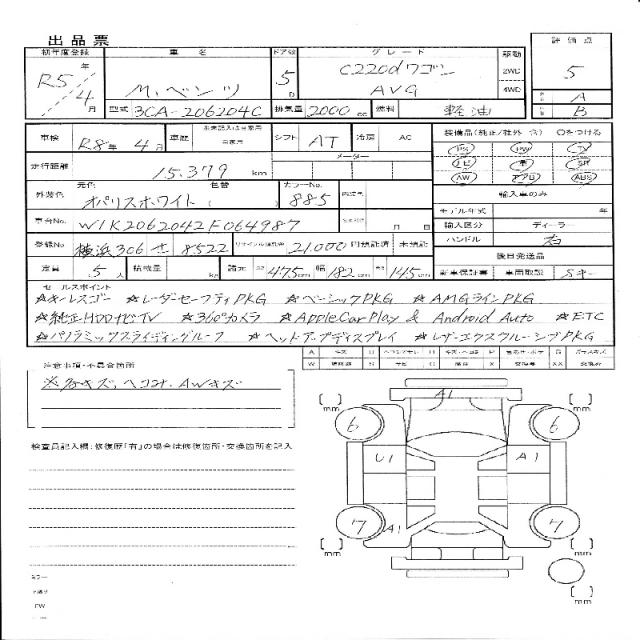 出品票
初年度登録 車名 ドア数 グレード 駆動 評価点
R5年 4月 M.ベンツ 5D C220dワゴン AVG 2WD 4WD 5
A
B
型式 3CA-206204C 排気量 2000cc 燃料 軽油
車検 R8年4月 車歴 自家用 シフト AT 冷房 AC 装備品(純正/社外 ) ○をつける
PS PW
走行距離 15,379 km メーター ナビ
AW エアB ABS
外装色 元色 オパリスホワイト 色替 ( カラーNo. 885 輸入車のみ
モデル年式 年
車台No. W1K2062042F064987 月 日 輸入区分 ディーラー
登録No 横浜306 せ 8522 リサイクル預託金 21,000円預託済 未預託 ハンドル 右
後日発送品
定員 5人 積載量 諸元 長 475cm 幅 182cm 高 145cm 新車保証書 車両取説 Sキー
セールスポイント
☆キーレスゴー ☆レーダーセーフティPKG ☆ベーシックPKG ☆AMGラインPKG
☆純正HDDナビTV ☆360°カメラ ☆AppleCarPlay & Android Auto ☆ETC
☆パノラミックスライディングルーフ ☆ヘッドアップディスプレイ ☆レザーエクスクルーシブPKG
A キズ U W XX
注意事項・不具合箇所
※各キズ、ヘコミ、AWキズ
検査員記入欄:修復歴「有」の場合は修復箇所・交換箇所を記入
A1
mm mm
6 6
U1 A1
7 A1 7
mm mm
mm